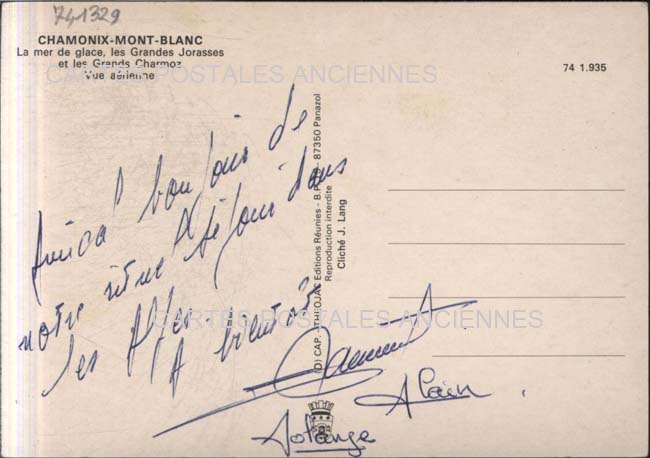 741329
CHAMONIX-MONT-BLANC
La mer de glace, les Grandes Jorasses
et les Grands Charmoz
Vue aérienne
CARTES POSTALES ANCIENNES
74 1.935
Amical bonjour de
notre séjour dans
les Alpes.
A bientôt
CARTES POSTALES ANCIENNES
Alain
Solange
(D) CAP. THÉOJAC Editions Réunies - 87350 Panazol
Reproduction interdite
Cliché J. Lang